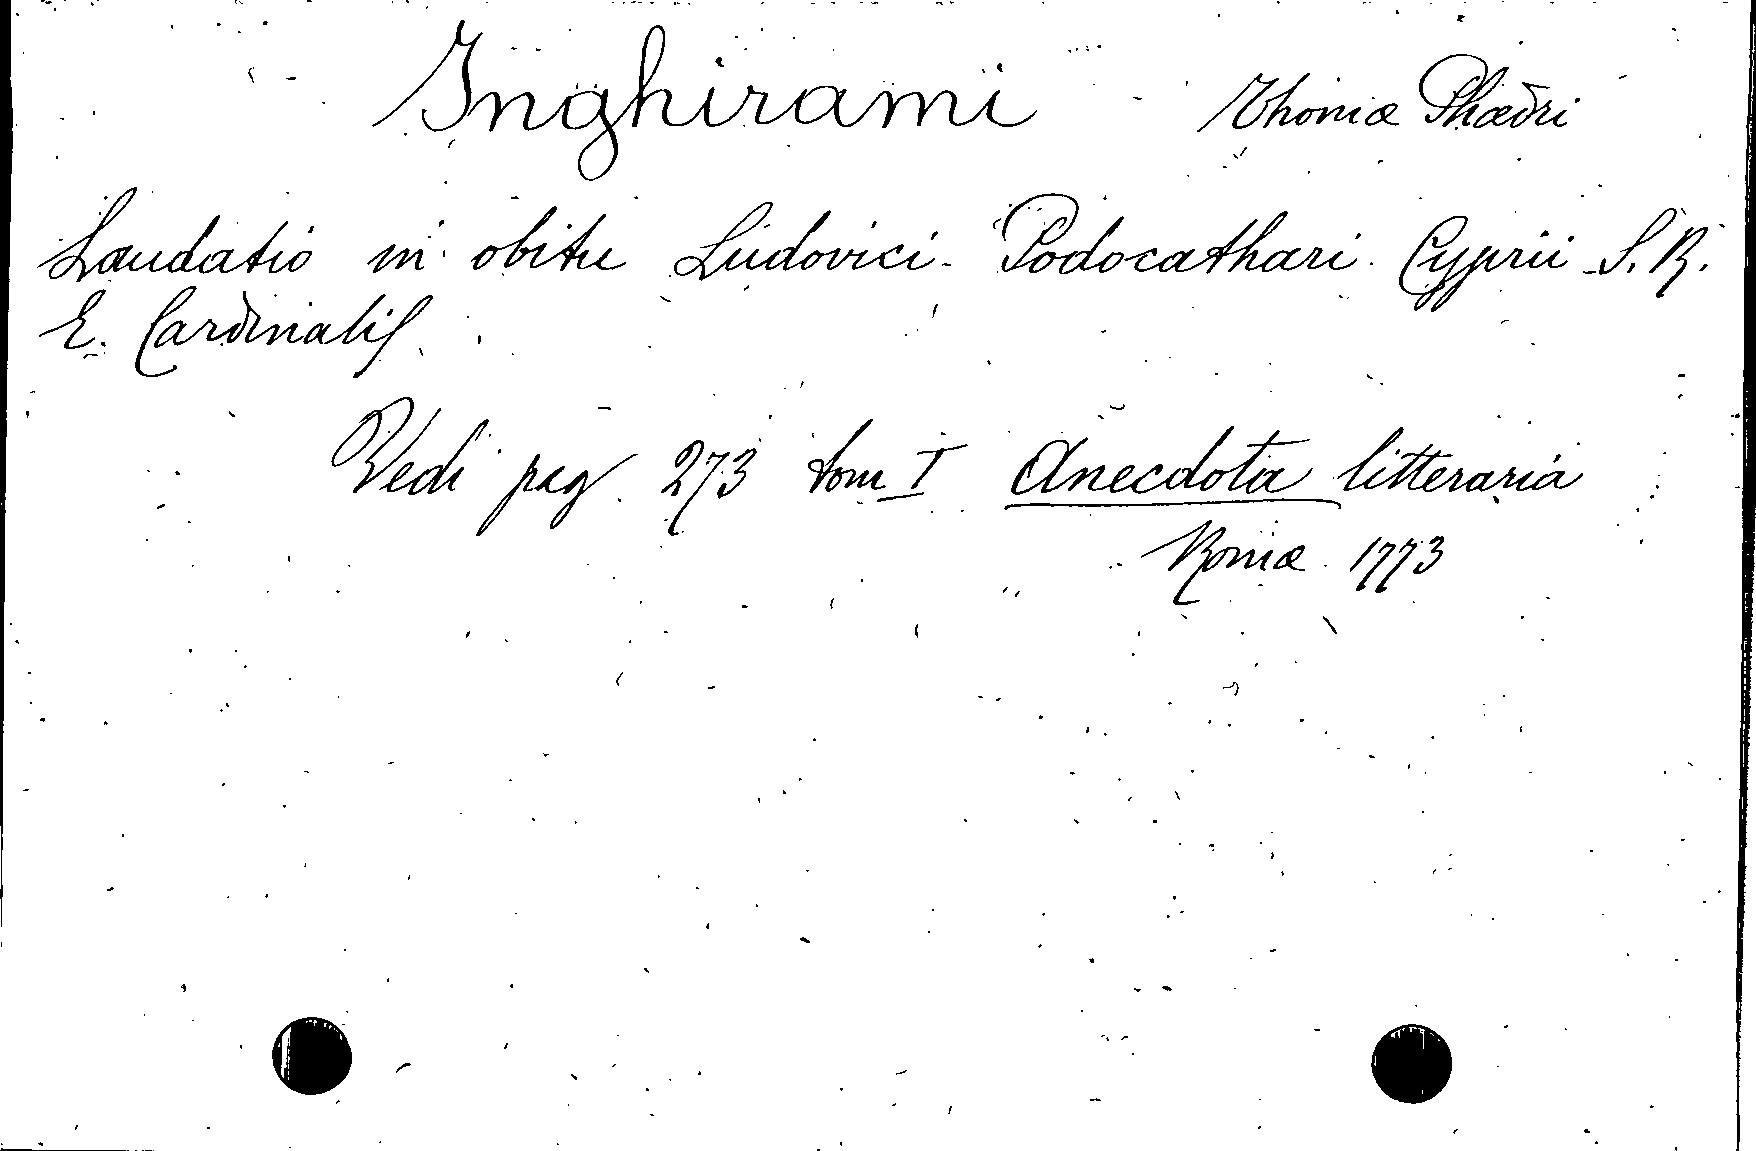 Inghirami Thomæ Phædri
Laudatio in obitu Ludovici Podocathari Cyprii S. R.
E. Cardinalis
Vedi pag. 273 tom I Anecdota litteraria
Romæ 1773